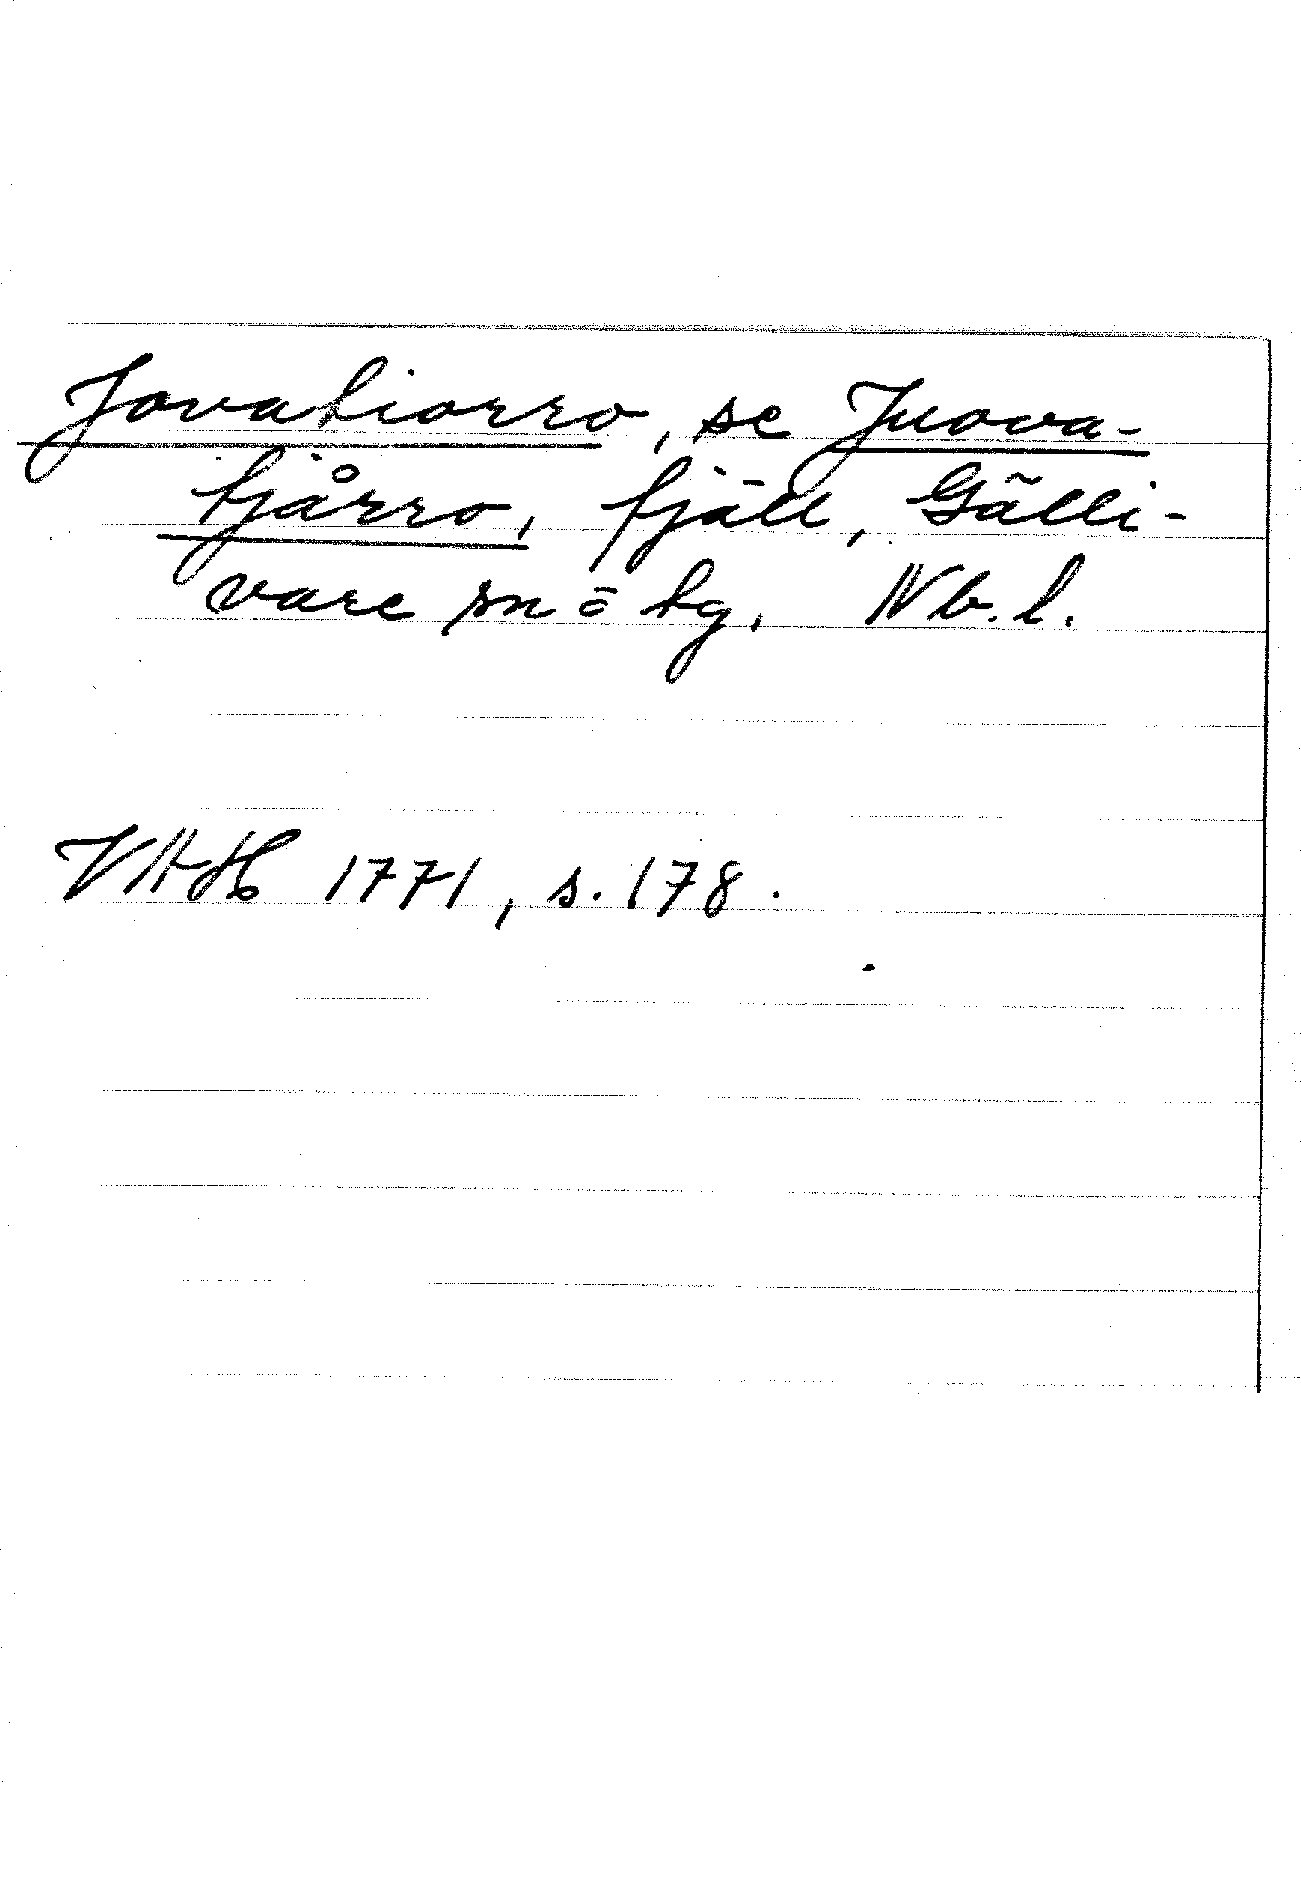 Jovatiorro, se Juova-
tjårro, fjäll, Gälli-
vare sn o tg, Nb. l.
VAH 1771, s. 178.